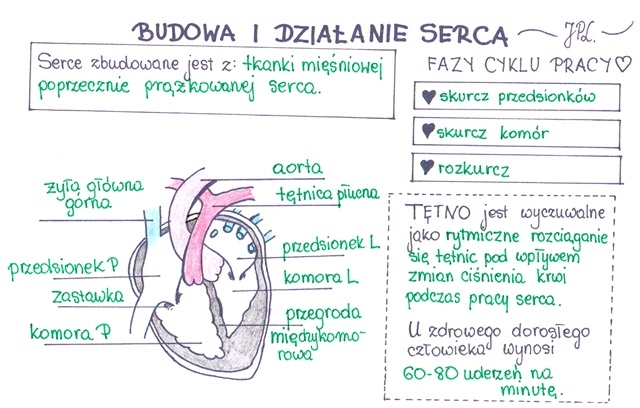 BUDOWA I DZIAŁANIE SERCA
JPL.
Serce zbudowane jest z: tkanki mięśniowej
poprzecznie prążkowanej serca.
FAZY CYKLU PRACY
skurcz przedsionków
skurcz komór
rozkurcz
aorta
tętnica płucna
żyła główna
górna
przedsionek L
przedsionek P
komora L
zastawka
przegroda
międzykomo-
rowa
komora P
TĘTNO jest wyczuwalne
jako rytmiczne rozciąganie
się tętnic pod wpływem
zmian ciśnienia krwi
podczas pracy serca.
U zdrowego dorosłego
człowieka wynosi
60-80 uderzeń na
minutę.